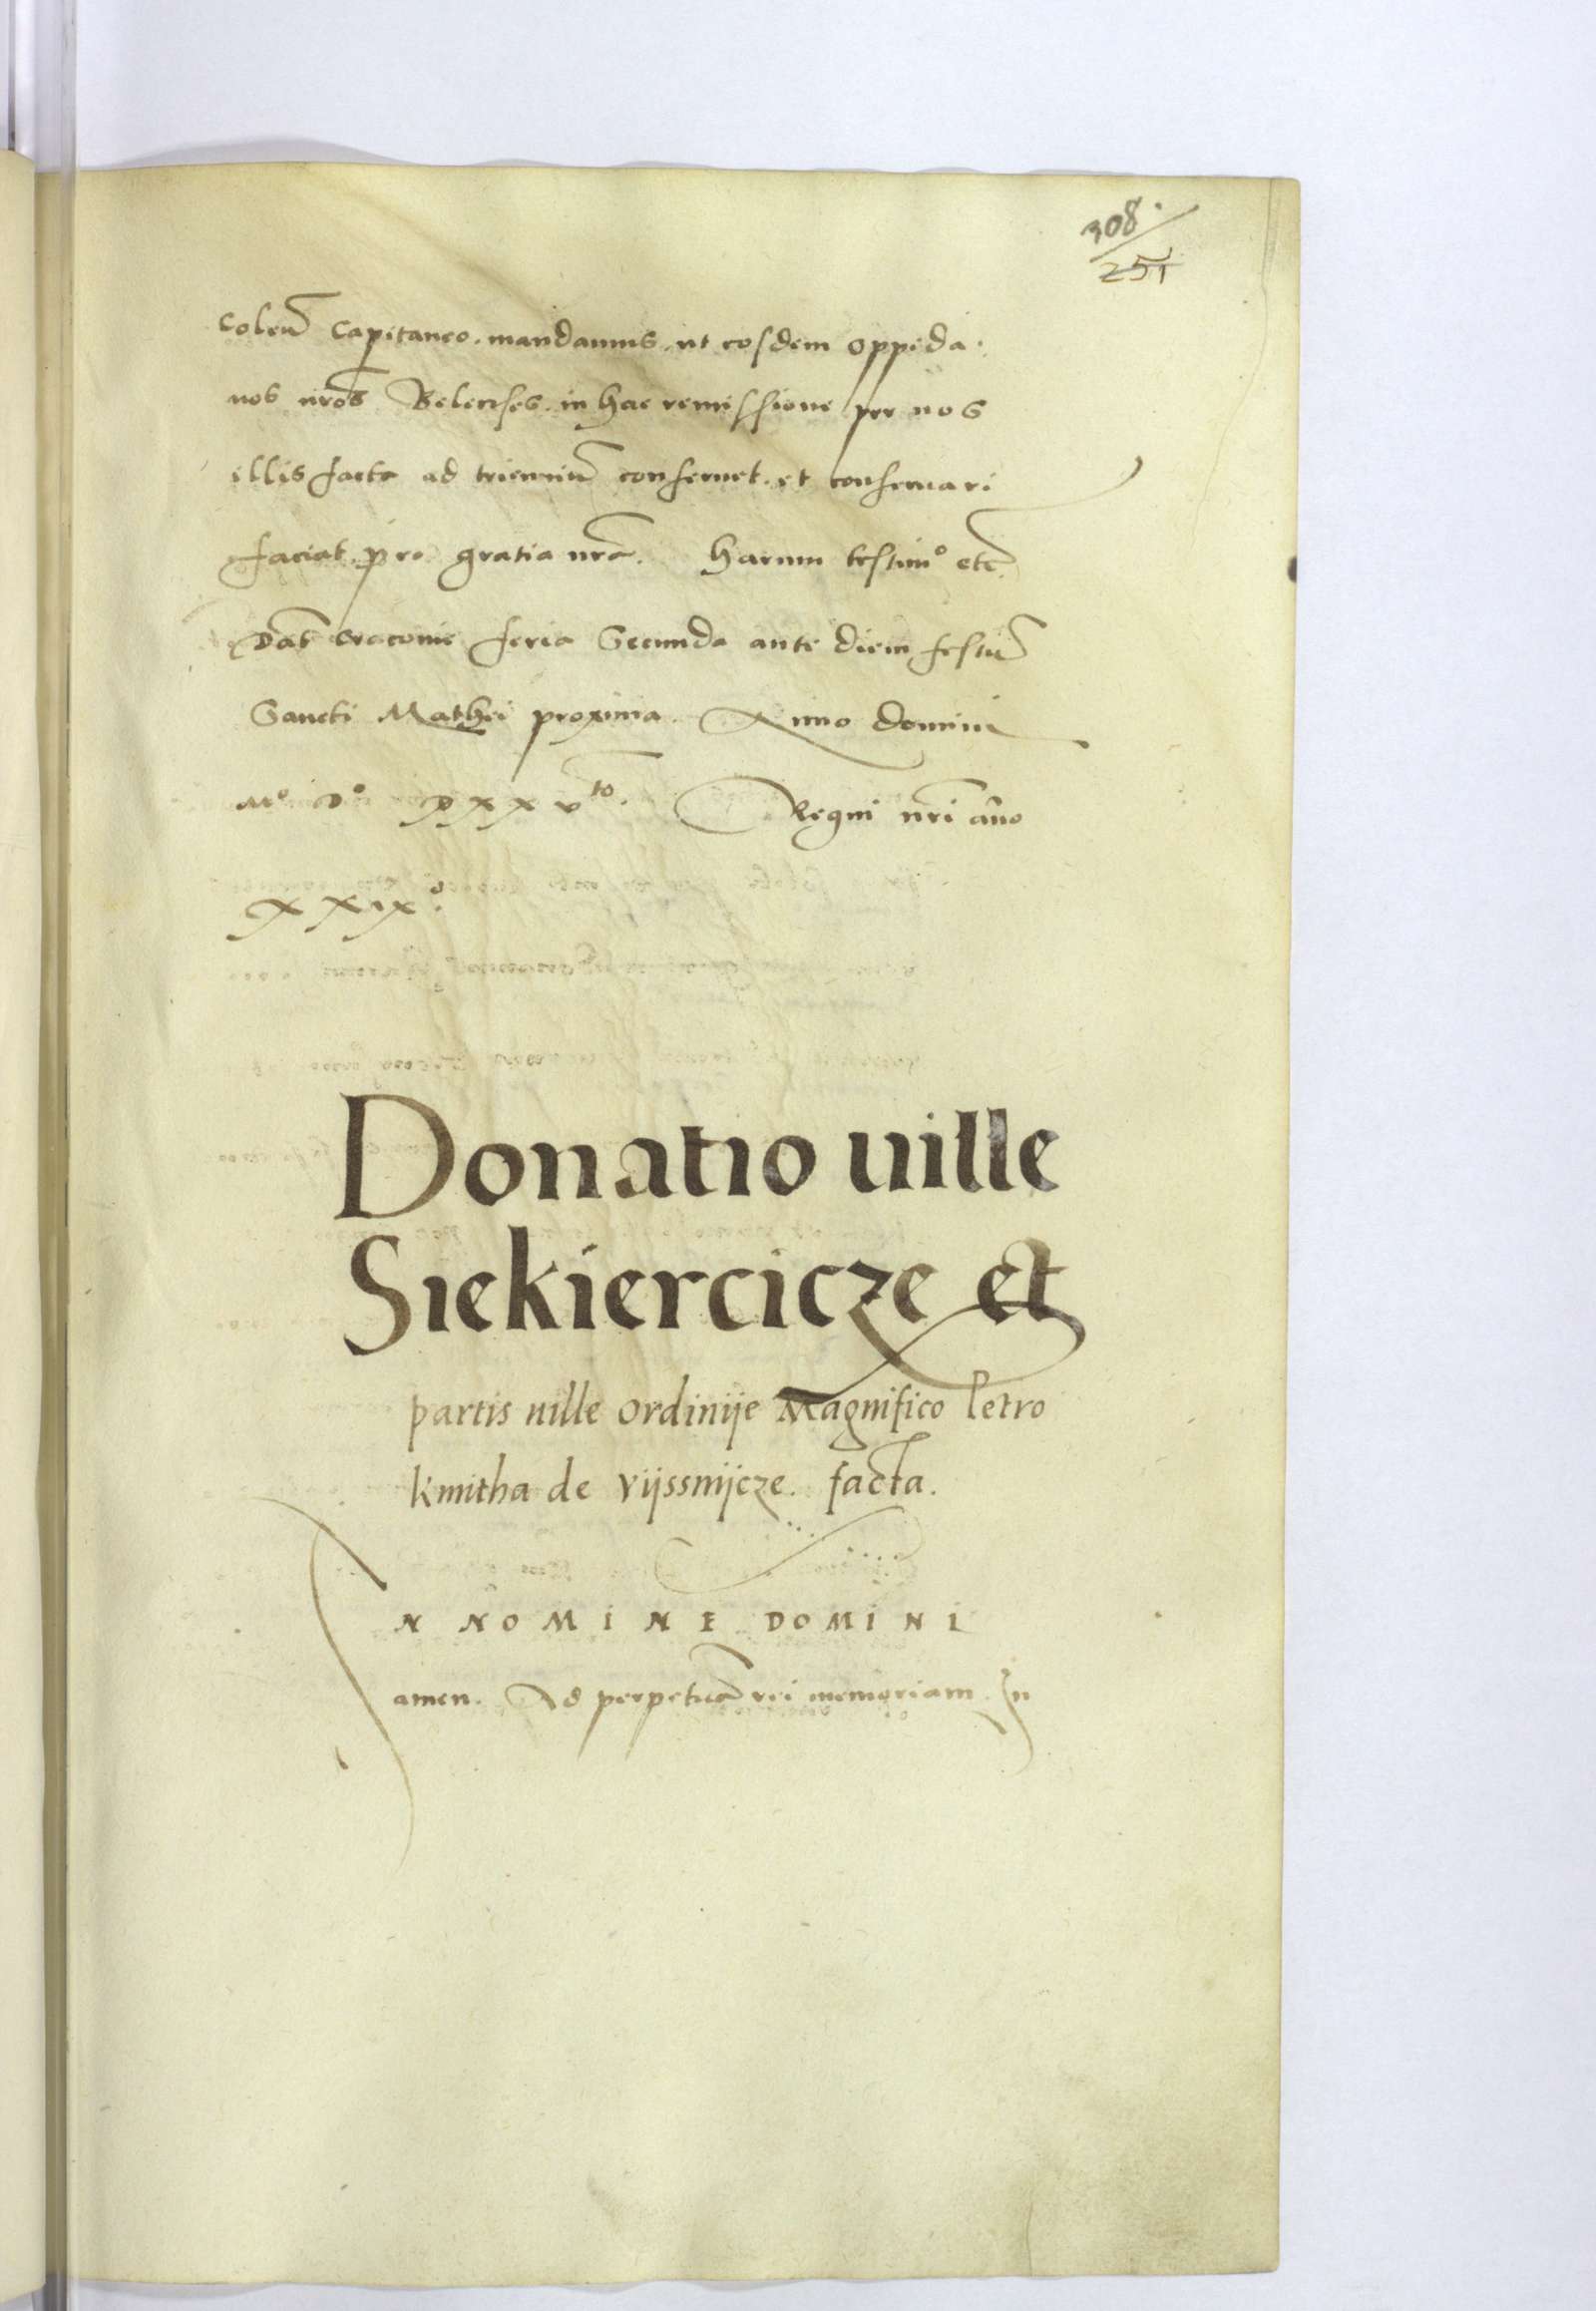 308.
251
Coleñ Capitaneo. mandamus. ut eosdem oppida.
nos nr̃os Belenses. in hac remissione per nos
illis facta ad trienniũ conseruet. et conseruari
faciat. pro gratia nr̃a. Harum testimº etc̃.
Dat̃ Cracouie feria Secunda ante diem festũ
Sancti Mathei proxima. Anno domini
Mº Dº XXXVto. Regni nr̃i año
XXIXº.
Donatio uille
Siekierciᴄze et
partis uille Ordinije Magnifico Petro
kmitha de Vijssnijcze. facta.
IN NOMINE DOMINI
amen. Ad perpetuã rei memoriam. In